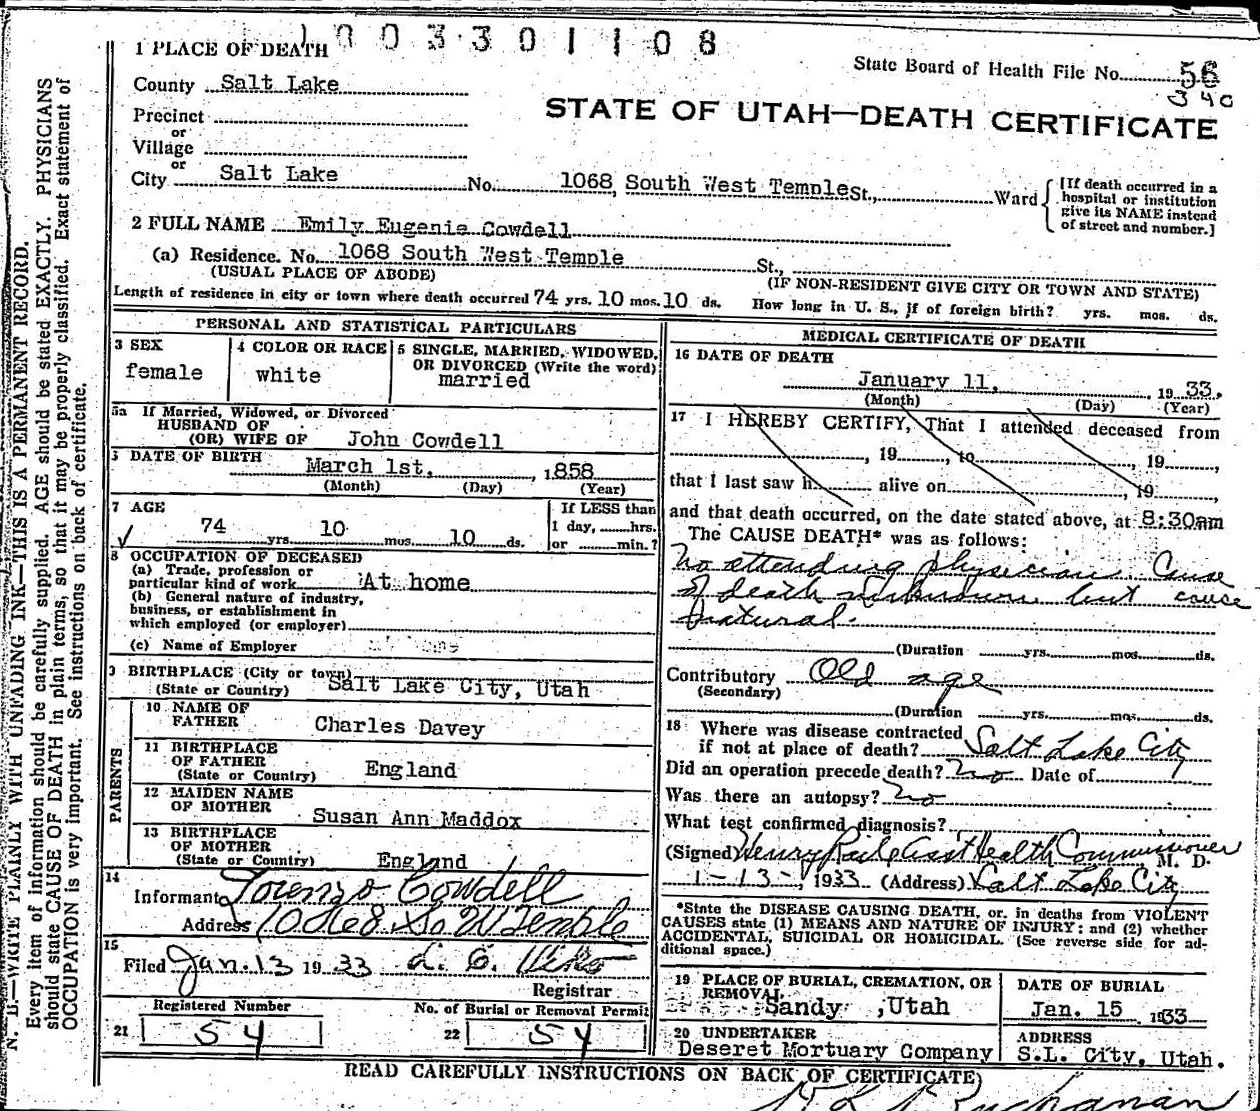 1003301108
1 PLACE OF DEATH
State Board of Health File No. 56
340
County Salt Lake
STATE OF UTAH—DEATH CERTIFICATE
Precinct
or
Village
or
City Salt Lake No. 1068 South West Temple St., Ward
[If death occurred in a
hospital or institution
give its NAME instead
of street and number.]
2 FULL NAME Emily Eugenie Cowdell
(a) Residence. No. 1068 South West Temple St.,
(USUAL PLACE OF ABODE) (IF NON-RESIDENT GIVE CITY OR TOWN AND STATE)
Length of residence in city or town where death occurred 74 yrs. 10 mos. 10 ds. How long in U. S., if of foreign birth? yrs. mos. ds.
PERSONAL AND STATISTICAL PARTICULARS
3 SEX
female
4 COLOR OR RACE
white
5 SINGLE, MARRIED, WIDOWED,
OR DIVORCED (Write the word)
married
5a If Married, Widowed, or Divorced
HUSBAND OF
(OR) WIFE OF John Cowdell
DATE OF BIRTH
March 1st, 1858
(Month) (Day) (Year)
7 AGE
74 yrs. 10 mos. 10 ds.
If LESS than
1 day, hrs.
or min.?
8 OCCUPATION OF DECEASED
(a) Trade, profession or
particular kind of work At home
(b) General nature of industry,
business, or establishment in
which employed (or employer)
(c) Name of Employer
BIRTHPLACE (City or town)
(State or Country) Salt Lake City, Utah
PARENTS
10 NAME OF
FATHER Charles Davey
11 BIRTHPLACE
OF FATHER
(State or Country) England
12 MAIDEN NAME
OF MOTHER Susan Ann Maddox
13 BIRTHPLACE
OF MOTHER
(State or Country) England
14
Informant Lorenzo Cowdell
Address 1068 So W Temple
15
Filed Jan. 13 1933 L. E.
Registrar
Registered Number No. of Burial or Removal Permit
21 54 22 54
MEDICAL CERTIFICATE OF DEATH
16 DATE OF DEATH
January 11, 1933.
(Month) (Day) (Year)
17 I HEREBY CERTIFY, That I attended deceased from
, 19 , to , 19 ,
that I last saw h alive on , 19 ,
and that death occurred, on the date stated above, at 8:30am
The CAUSE DEATH* was as follows:
No attending physician Cause
of death unknown but cause
natural.
(Duration yrs. mos. ds.
Contributory Old age
(Secondary)
(Duration yrs. mos. ds.
18 Where was disease contracted
if not at place of death? Salt Lake City
Did an operation precede death? No Date of
Was there an autopsy? No
What test confirmed diagnosis?
(Signed) Henry Raile Asst Health Commissioner M. D.
1-13-, 1933 (Address) Salt Lake City
*State the DISEASE CAUSING DEATH, or, in deaths from VIOLENT
CAUSES state (1) MEANS AND NATURE OF INJURY; and (2) whether
ACCIDENTAL, SUICIDAL OR HOMICIDAL. (See reverse side for ad-
ditional space.)
19 PLACE OF BURIAL, CREMATION, OR
REMOVAL
Sandy ,Utah
DATE OF BURIAL
Jan. 15 , 1933
20 UNDERTAKER
Deseret Mortuary Company
ADDRESS
S.L. City, Utah.
READ CAREFULLY INSTRUCTIONS ON BACK OF CERTIFICATE
Buchanan
N. B.—WRITE PLAINLY WITH UNFADING INK—THIS IS A PERMANENT RECORD.
Every item of information should be carefully supplied. AGE should be stated EXACTLY. PHYSICIANS
should state CAUSE OF DEATH in plain terms, so that it may be properly classified. Exact statement of
OCCUPATION is very important. See instructions on back of certificate.